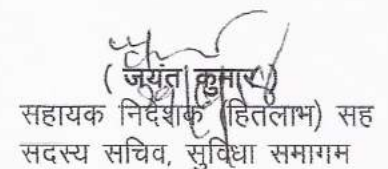 ( जयंत कुमार )
सहायक निदेशक (हितलाभ) सह
सदस्य सचिव, सुविधा समागम